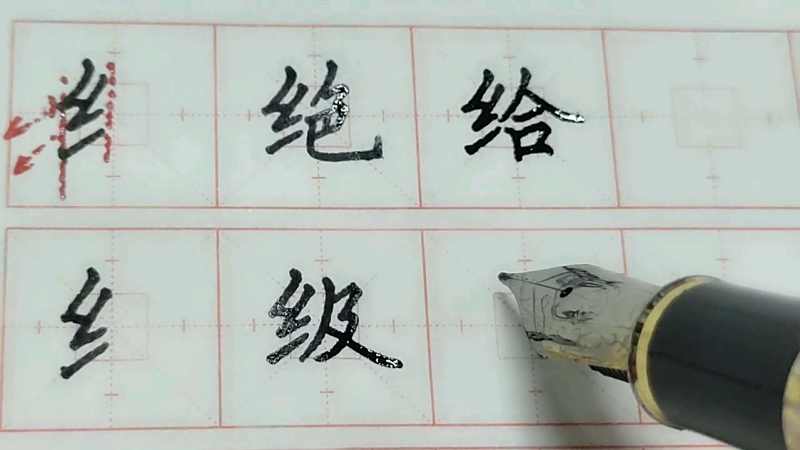 纟绝给
纟级